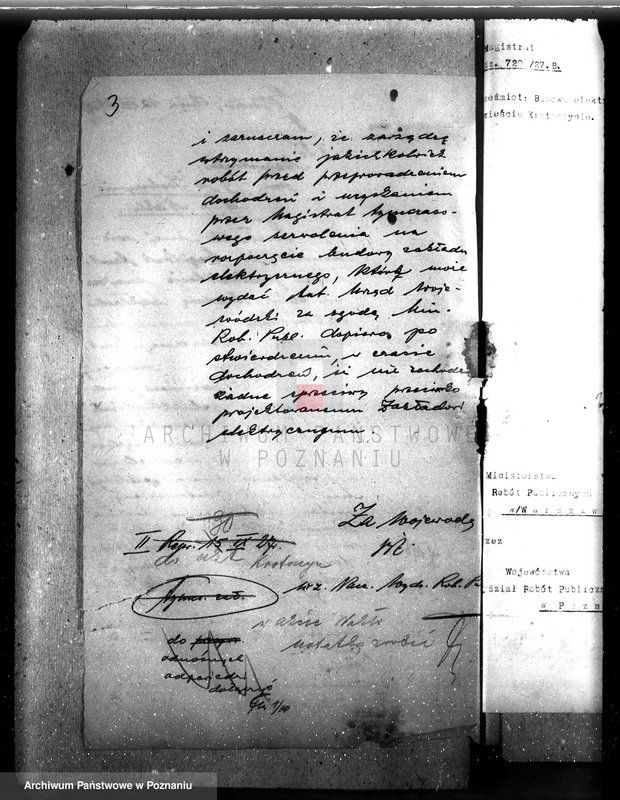 3
i zaznaczam, że zarządzę
wstrzymanie jakichkolwiek
robót przed przeprowadzeniem
dochodzeń i uzyskaniem
przez Magistrat tymczaso-
wego zezwolenia na
rozpoczęcie budowy zakładu
elektrycznego, które może
wydać Urząd Woje-
wódzki za zgodą Min.
Rob. Publ. dopiero po
stwierdzeniu, w czasie
dochodzeń, iż nie zachodzą
żadne sprzeciwy przeciwko
projektowanemu Zakładowi
elektrycznemu
ARCHIWUM PAŃSTWOWE
W POZNANIU
Za Wojewodę
II
Krotoszyn
Nacz. Wydz. Rob. P
do
odnośnych
odpowiedzi
dołączyć
Magistrat
720/27.B.
zedmiot: Budowa elekt
mieście Krotoszynie.
Ministerstwa
Robót Publicznych
w/Warszaw
zez
Województwa
dział Robót Publiczn
w Pozn
Archiwum Państwowe w Poznaniu